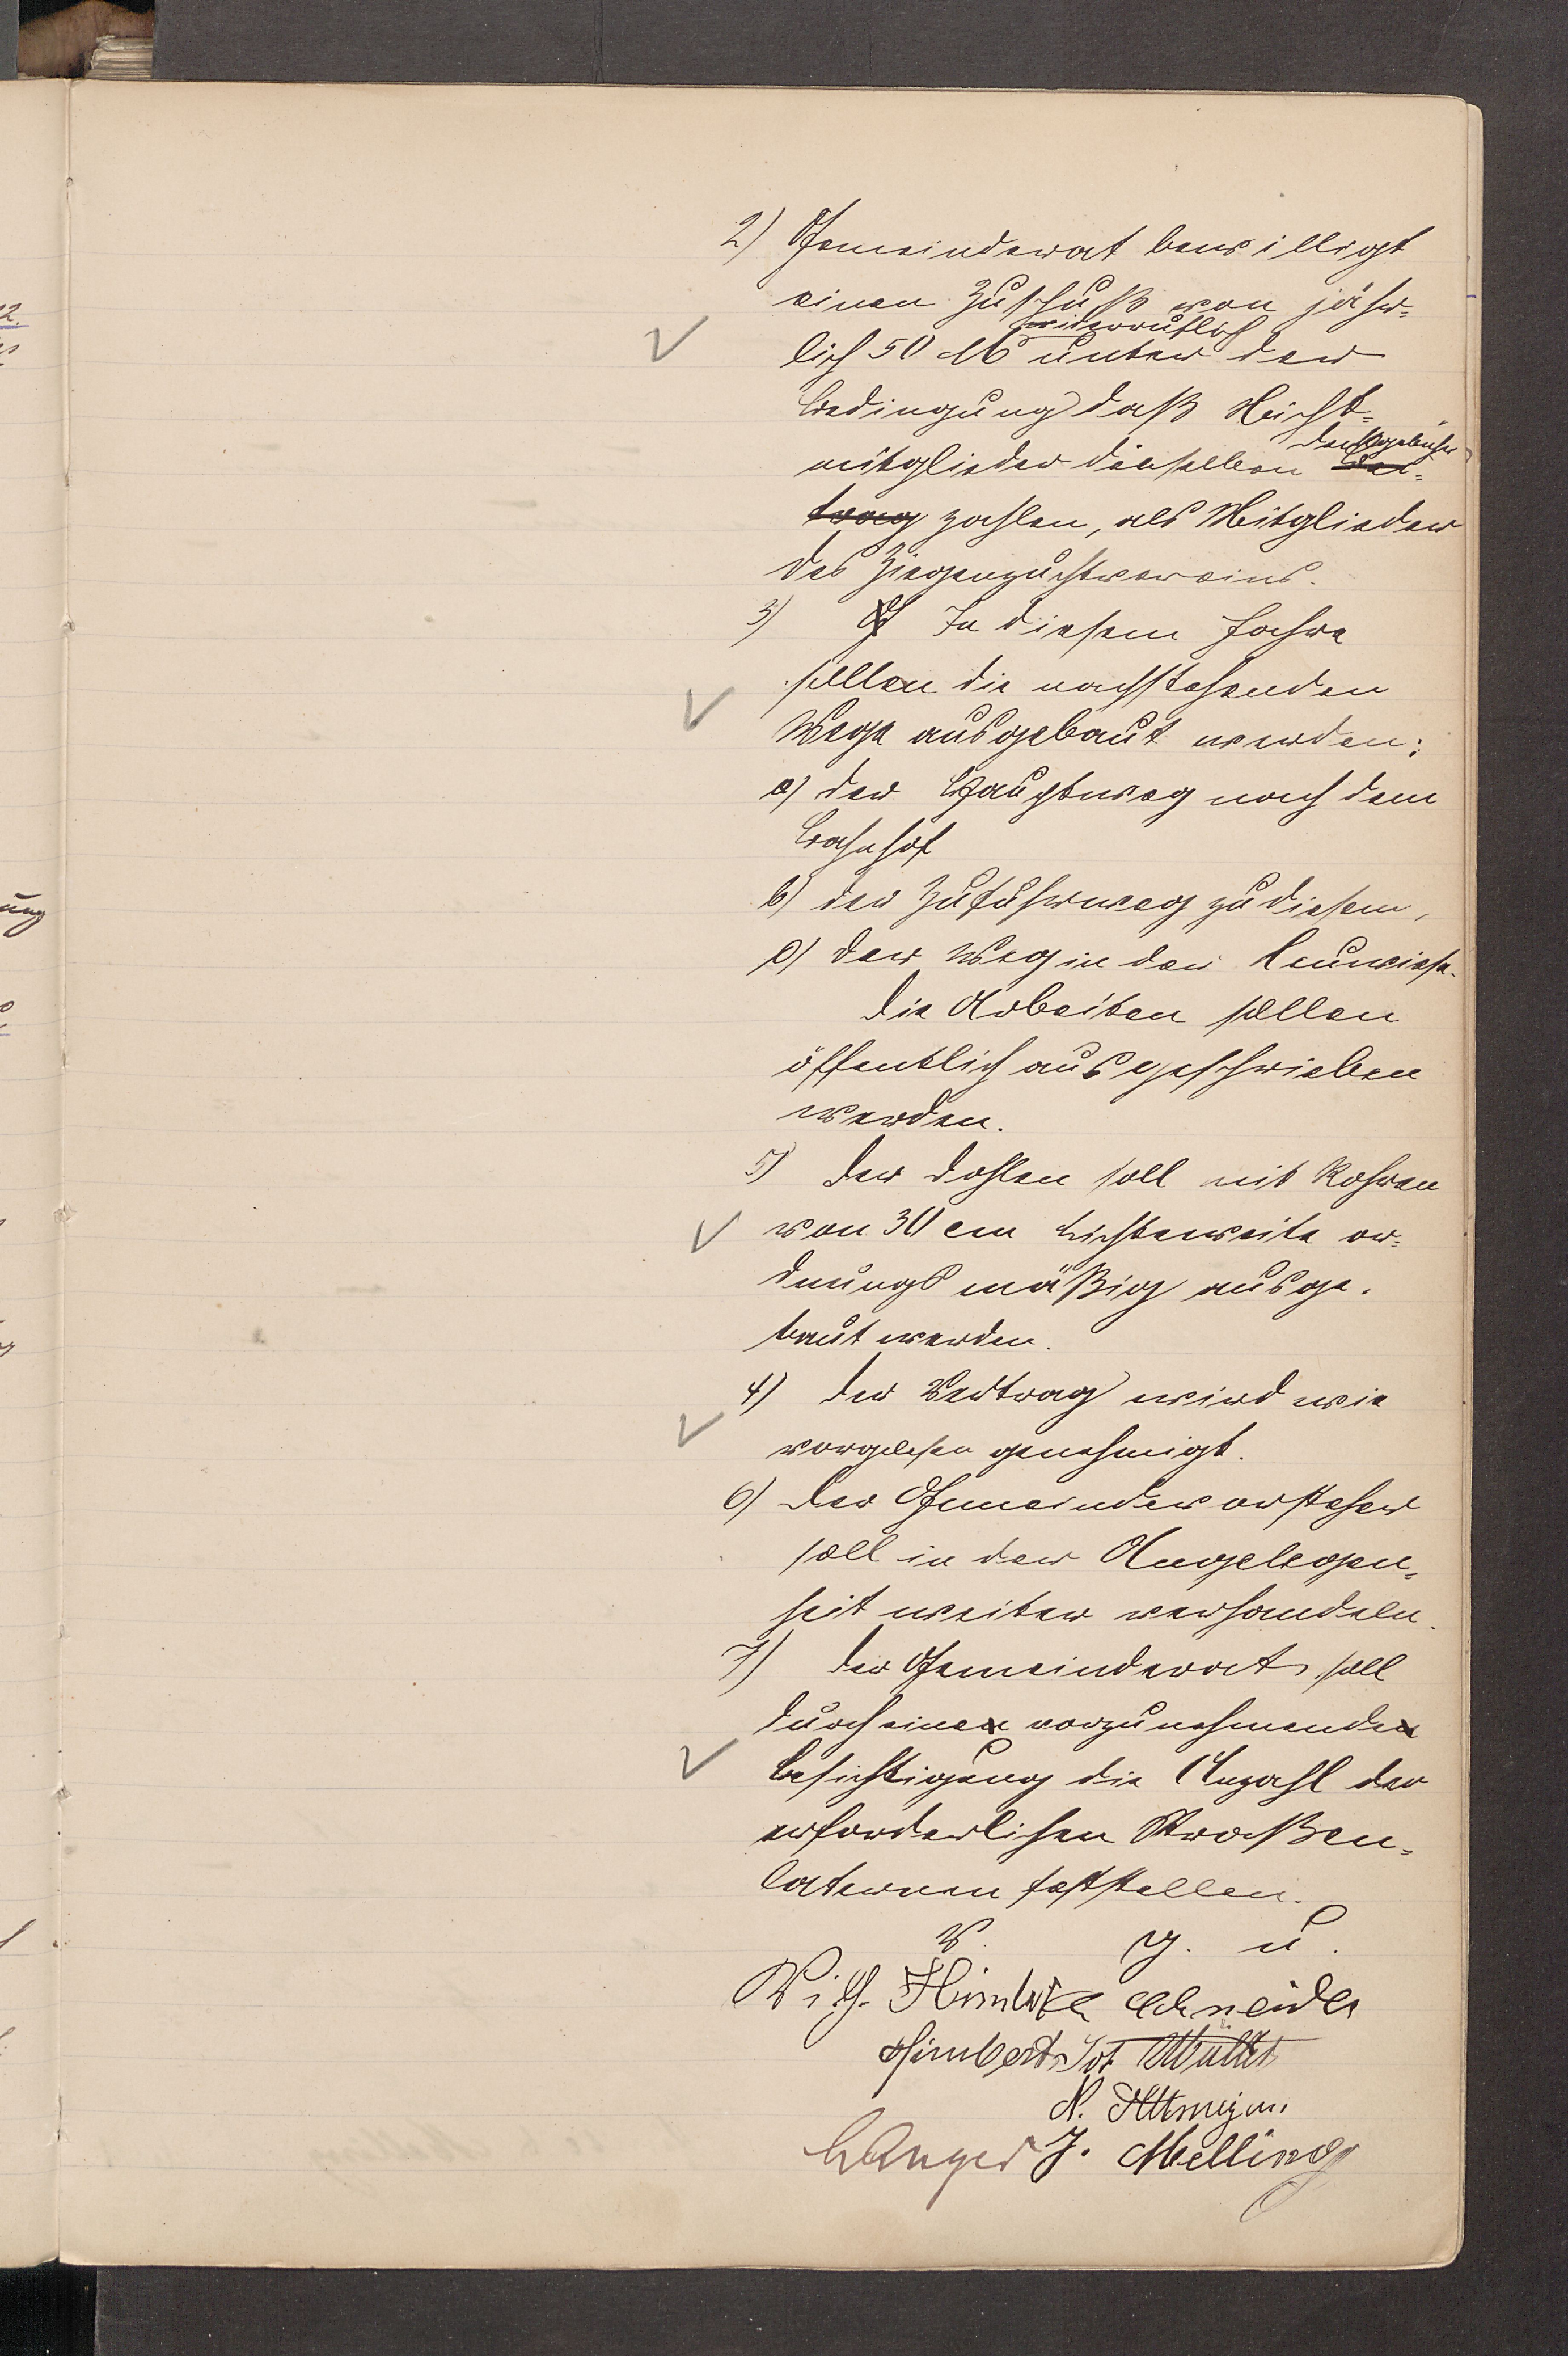 2) Gemeinderat bewilligt
einen Zuschuß von jähr-
widerruflich
lich 50 M unter der
Bedingung daß Nicht-
Deckgebühr
mitglieder dieselben Bei-
trag zahlen, als Mitglieder
des Ziegenzuchtvereins.
3) In diesem Jahre
sollen die nachstehenden
Wege ausgebaut werden:
a) der Hauptweg nach dem
Bahnhof
b) der Zufuhrweg zu diesem,
c) der Weg in der Neuwiese.
Die Arbeiten sollen
öffentlich ausgeschrieben
werden.
5) Der Dohlen soll mit Rohren
von 30 cm Lichtenweite or-
dnungsmäßig ausge-
baut werden.
4) Der Vertrag wird wie
vorgelesen genehmigt.
6) Der Gemeindevorsteher
soll in der Angelegen-
heit weiter verhandeln.
7) Der Gemeinderat soll
durch eine vorzunehmende
Besichtigung die Anzahl der
erforderlichen Straßen-
laternen feststellen.
V. g. u.
Wilh. Schneider
Himbert Joh Müller
N. Altmeyer
J. Melling